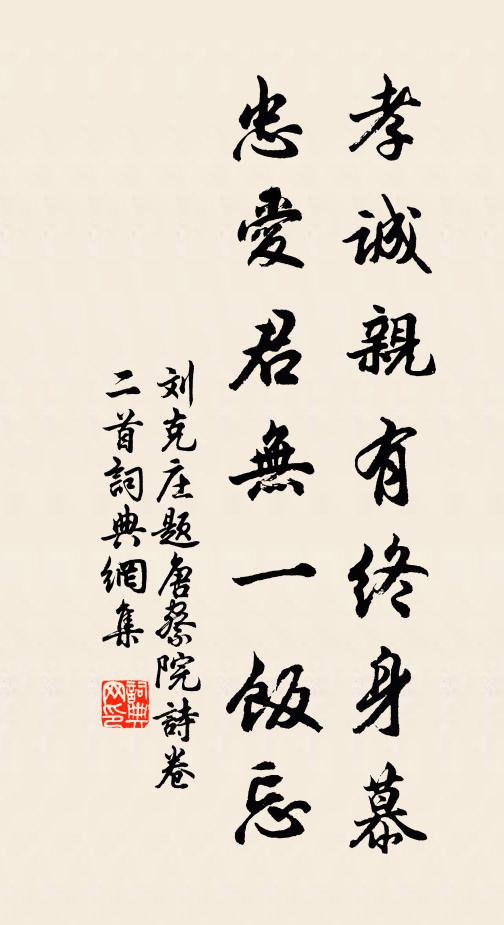 孝誠親有終身慕
忠愛君無一飯忘
刘克庄题唐察院詩卷
二首詞典網集
詞典
网印